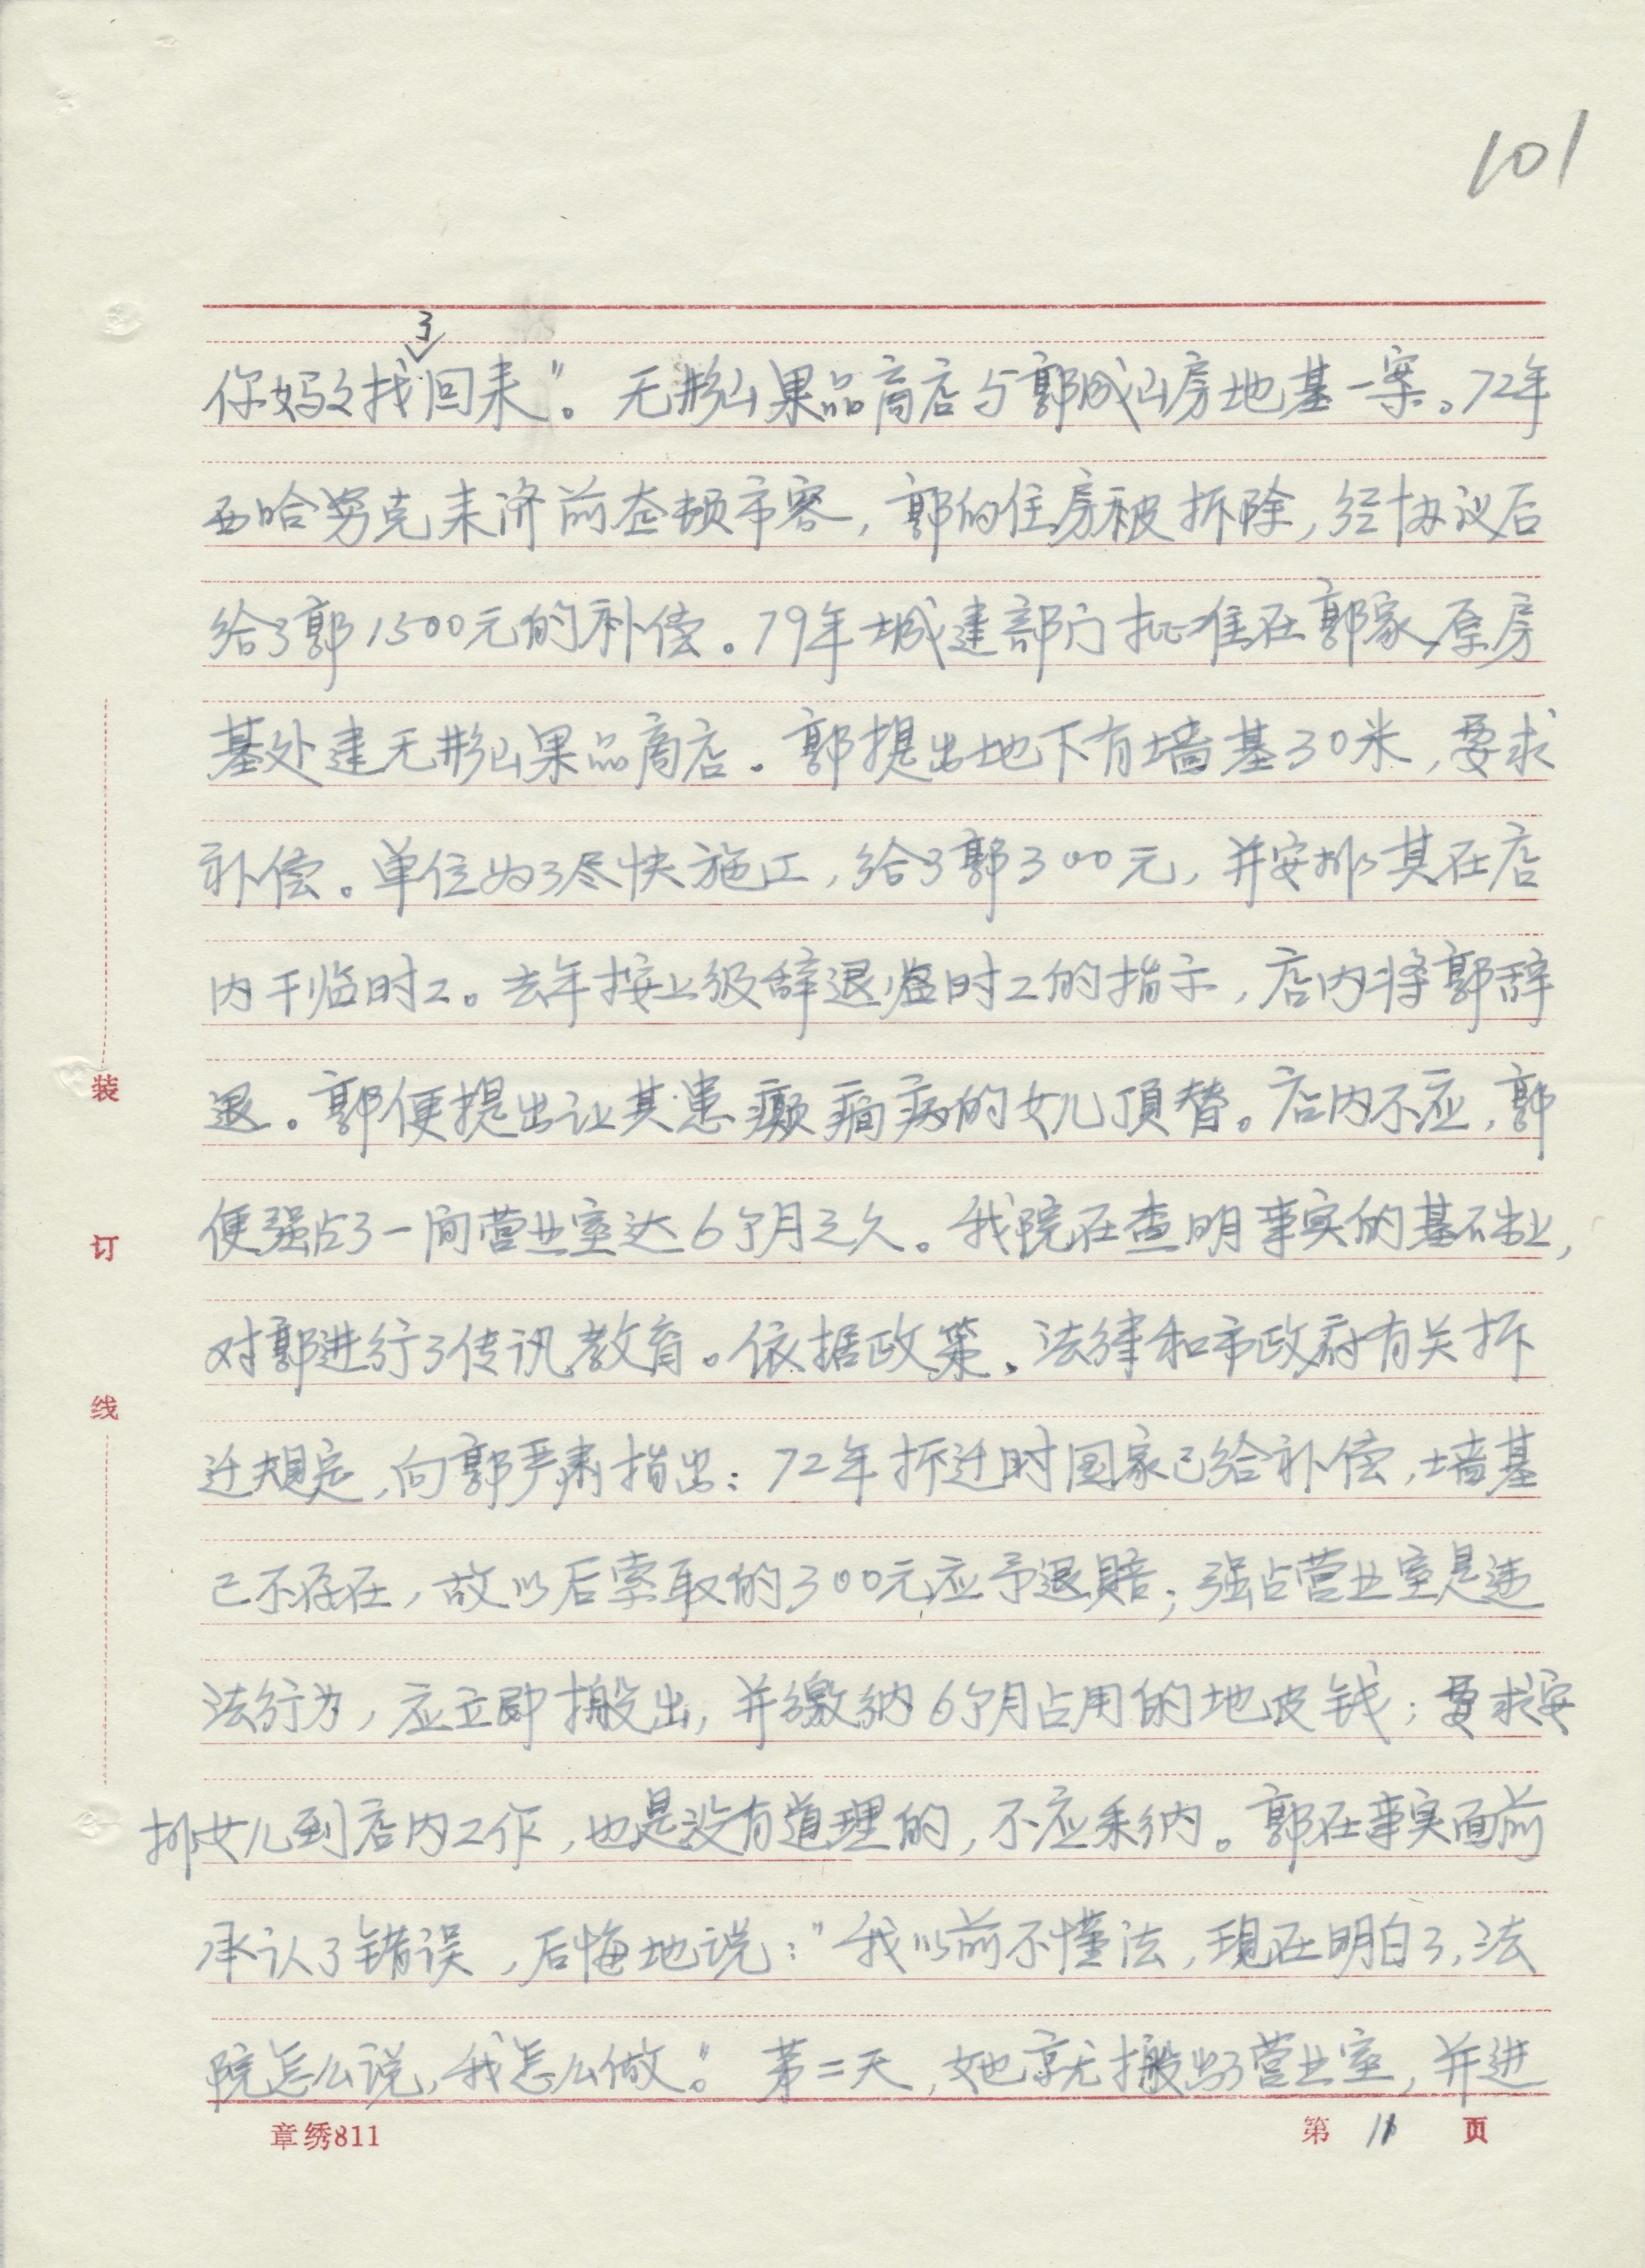 101
你妈妈找了回来"。无影山果品商店与郭成山房地基一案。72年
西哈努克来济前整顿市容，郭的住房被拆除，经协议后
给了郭1500元的补偿。79年城建部门批准在郭家原房
基处建无影山果品商店。郭提出地下有墙基30米，要求
补偿。单位为了尽快施工，给了郭300元，并安排其在店
内干临时工。去年按上级辞退临时工的指示，店内将郭辞
退。郭便提出让其患癫痫病的女儿顶替。店内不应，郭
便强占了一间营业室达6个月之久。我院在查明事实的基础上，
对郭进行了传讯教育。依据政策、法律和市政府有关拆
迁规定，向郭严肃指出：72年拆迁时国家已给补偿，墙基
已不存在，故以后索取的300元应予退赔；强占营业室是违
法行为，应立即搬出，并缴纳6个月占用的地皮钱；要求安
排女儿到店内工作，也是没有道理的，不应采纳。郭在事实面前
承认了错误，后悔地说："我以前不懂法，现在明白了，法
院怎么说，我怎么做。"第二天，她就搬出了营业室，并进
装
订
线
章绣811
第 页